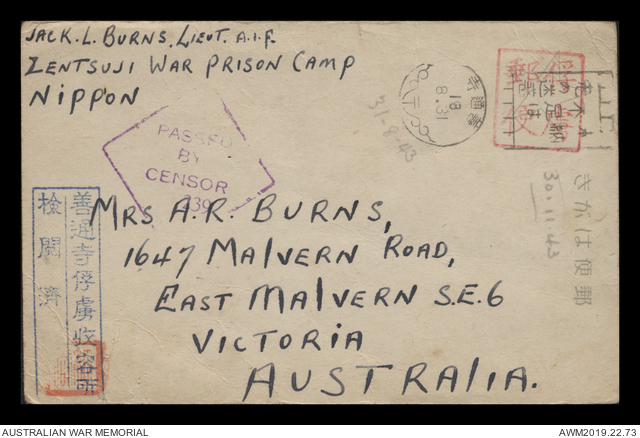 JACK. L. BURNS. LIEUT. A.I.F.
ZENTSUJI WAR PRISON CAMP
NIPPON
善通寺
18
8.31
31-8-43
PASSED
BY
CENSOR
239
郵便
きがは便郵
30.11.43
善通寺俘虜收容所
検閲済
MRS A.R. BURNS,
1647 MALVERN ROAD,
EAST MALVERN S.E.6
VICTORIA
AUSTRALIA.
AUSTRALIAN WAR MEMORIAL
AWM2019.22.73